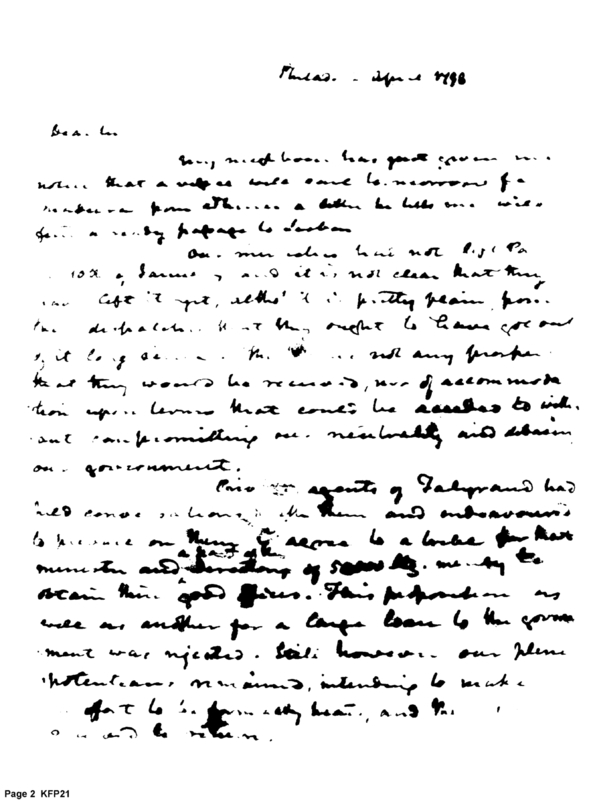 Philad. - April 1798
Dear Sir
My neighbour has just given me
notice that a vessel will sail to-morrow for
Madeira from whence a letter he tells me will
find a ready passage to Lisbon
Our ministers had not left Pa
10th of January and it is not clear that they
left it yet, altho' it is pretty plain, from
the dispatches that they ought to have got out
of it long since. not any prosper
that they would be received, nor of accommoda
tion upon terms that could be acceded to with
out compromitting our neutrality and debasing
our government.
agents of Talleyrand had
held conversations with them and endeavoured
to prevail on them to agree to a bribe for that
a part of the
minister and directory of merely to
obtain their good offices. This proposition as
well as another for a large loan to the govern
ment was rejected. Still however our pleni
potentiaries remained, intending to make
effort to be formally heard, and
to return.
Page 2 KFP21